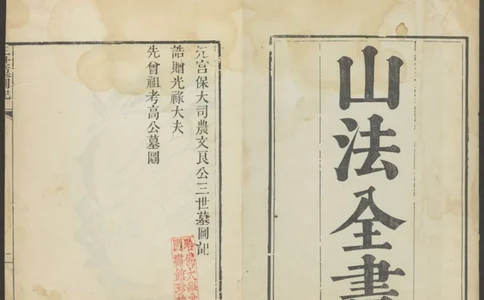 山法全書
先宮保大司農文良公三世墓圖記
誥贈光祿大夫
先曾祖考高公墓圖